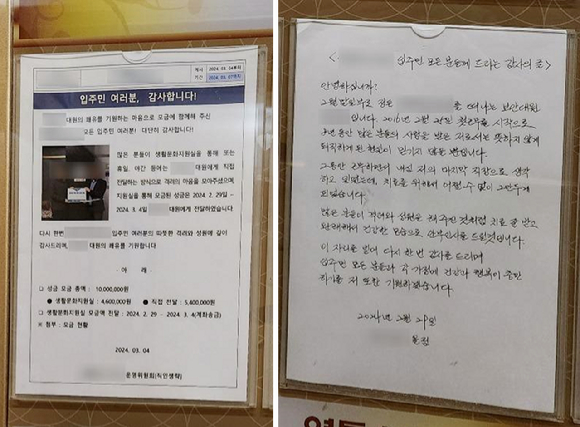 게시 2024. 03. 04부터
2024. 03. 07까지
입주민 여러분, 감사합니다!
대원의 쾌유를 기원하는 마음으로 모금에 함께해 주신
모든 입주민 여러분! 대단히 감사합니다!
많은 분들이 생활문화지원실을 통해 또는
휴일, 야간 등에는 대원에게 직접
전달하는 방식으로 격려의 마음을 모아주셨으며
지원실을 통해 모금된 성금은 2024. 2. 29일~
2024. 3. 4일 대원에게 전달하였습니다
다시 한번 입주민 여러분의 따뜻한 격려와 성원에 깊이
감사드리며, 대원의 쾌유를 기원합니다
- 아 래 -
□ 성금 모금 총액 : 10,000,000원
● 생활문화지원실 : 4,600,000원 ● 직접 전달 : 5,400,000원
□ 생활문화지원실 모금액 전달 : 2024. 2. 29 ~ 2024. 3. 4(계좌송금)
※ 첨부 : 모금 현황
2024. 03. 04
운영위원회(직인생략)
< 입주민 모든 분들께 드리는 감사의 글 >
안녕하십니까?
2월 말일부로 정든 을 떠나는 보안대원
입니다. 2016년 2월 첫 근무를 시작으로
많은 분들의 사랑을 받은 저로서는 뜻하지 않게
퇴직하게 된 현실이 믿기지 않을 뿐입니다.
그동안 근무하면서 내심 저의 마지막 직장으로 생각
하고 있었는데, 치료를 위해서 어쩔 수 없이 그만두게
되었습니다.
많은 분들의 격려와 성원을 치료 잘 받고
완쾌해서 건강한 모습으로 안부인사를 드릴것입니다.
이 자리를 빌어 다시 한번 감사를 드리며
입주민 모든 분들과 각 가정에 건강과 행복이 충만
하기를 저 또한 기원하겠습니다.
2024년 2월 29일